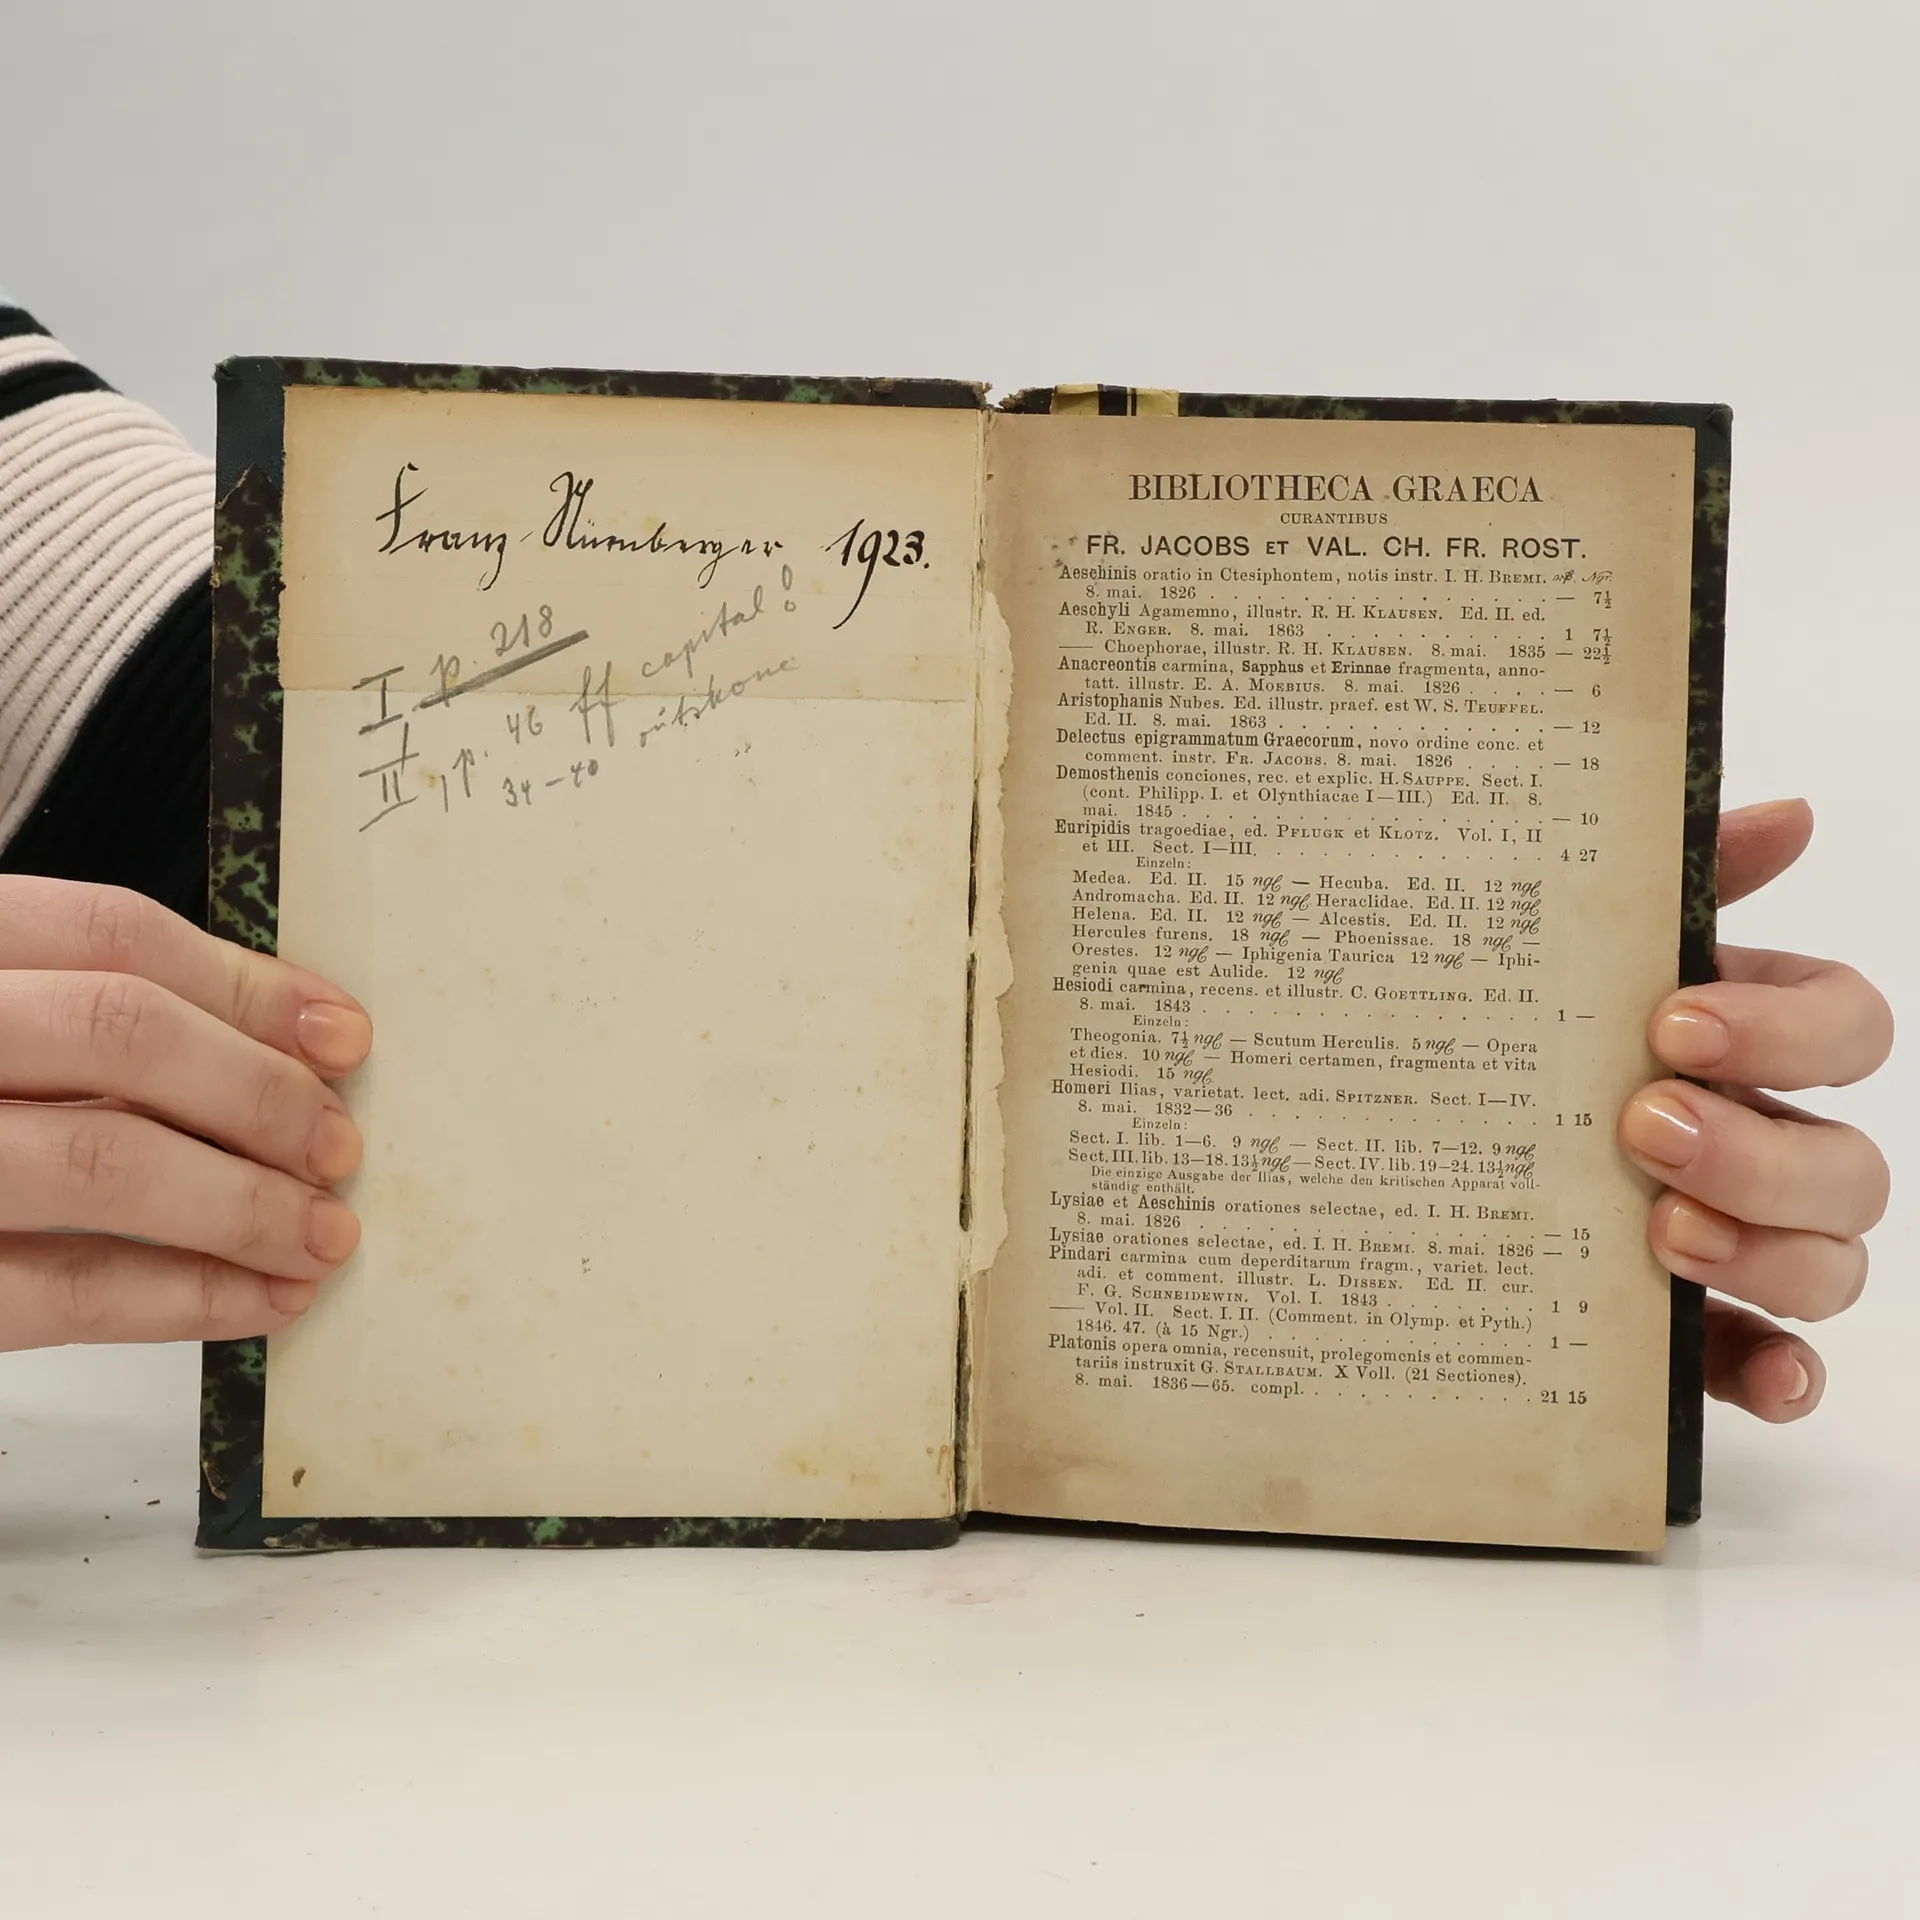 Franz Nürnberger 1923.
I p. 218
II p. 46 ff capital!
34-40
BIBLIOTHECA GRAECA
CURANTIBUS
FR. JACOBS ET VAL. CH. FR. ROST.
Aeschinis oratio in Ctesiphontem, notis instr. I. H. BREMI. Ngr.
8. mai. 1826 . . . . . . . . . . . . . — 7½
Aeschyli Agamemno, illustr. R. H. KLAUSEN. Ed. II. ed.
R. ENGER. 8. mai. 1863 . . . . . . . . . 1 7½
—— Choephorae, illustr. R. H. KLAUSEN. 8. mai. 1835 — 22½
Anacreontis carmina, Sapphus et Erinnae fragmenta, anno-
tatt. illustr. E. A. MOEBIUS. 8. mai. 1826 . . . . — 6
Aristophanis Nubes. Ed. illustr. praef. est W. S. TEUFFEL.
Ed. II. 8. mai. 1863 . . . . . . . . . . — 12
Delectus epigrammatum Graecorum, novo ordine conc. et
comment. instr. FR. JACOBS. 8. mai. 1826 . . . . — 18
Demosthenis conciones, rec. et explic. H. SAUPPE. Sect. I.
(cont. Philipp. I. et Olynthiacae I—III.) Ed. II. 8.
mai. 1845 . . . . . . . . . . . . . . — 10
Euripidis tragoediae, ed. PFLUGK et KLOTZ. Vol. I, II
et III. Sect. I—III. . . . . . . . . . . . 4 27
Einzeln:
Medea. Ed. II. 15 ngl — Hecuba. Ed. II. 12 ngl
Andromacha. Ed. II. 12 ngl Heraclidae. Ed. II. 12 ngl
Helena. Ed. II. 12 ngl — Alcestis. Ed. II. 12 ngl
Hercules furens. 18 ngl — Phoenissae. 18 ngl —
Orestes. 12 ngl — Iphigenia Taurica 12 ngl — Iphi-
genia quae est Aulide. 12 ngl
Hesiodi carmina, recens. et illustr. C. GOETTLING. Ed. II.
8. mai. 1843 . . . . . . . . . . . . . 1 —
Einzeln:
Theogonia. 7½ ngl — Scutum Herculis. 5 ngl — Opera
et dies. 10 ngl — Homeri certamen, fragmenta et vita
Hesiodi. 15 ngl
Homeri Ilias, varietat. lect. adi. SPITZNER. Sect. I—IV.
8. mai. 1832—36 . . . . . . . . . . . . 1 15
Einzeln:
Sect. I. lib. 1—6. 9 ngl — Sect. II. lib. 7—12. 9 ngl
Sect. III. lib. 13—18. 13½ ngl — Sect. IV. lib. 19—24. 13½ ngl
Die einzige Ausgabe der Ilias, welche den kritischen Apparat voll-
ständig enthält.
Lysiae et Aeschinis orationes selectae, ed. I. H. BREMI.
8. mai. 1826 . . . . . . . . . . . . . — 15
Lysiae orationes selectae, ed. I. H. BREMI. 8. mai. 1826 — 9
Pindari carmina cum deperditarum fragm., variet. lect.
adi. et comment. illustr. L. DISSEN. Ed. II. cur.
F. G. SCHNEIDEWIN. Vol. I. 1843 . . . . . . . 1 9
—— Vol. II. Sect. I. II. (Comment. in Olymp. et Pyth.)
1846. 47. (à 15 Ngr.) . . . . . . . . . . . 1 —
Platonis opera omnia, recensuit, prolegomenis et commen-
tariis instruxit G. STALLBAUM. X Voll. (21 Sectiones).
8. mai. 1836—65. compl. . . . . . . . . . . 21 15